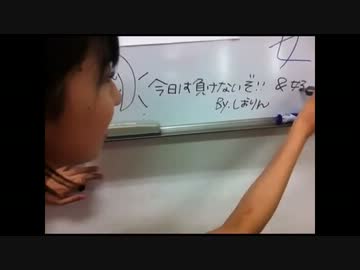 今日は負けないぞ!! &
BY.しおりん